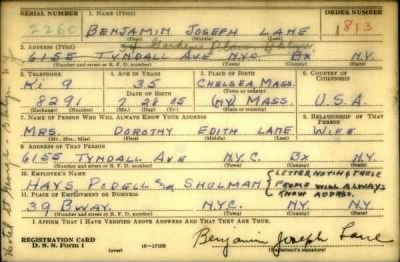 SERIAL NUMBER 1. NAME (Print) ORDER NUMBER
2260 BENJAMIN JOSEPH LANE 1813
(First) (Middle) (Last)
2. ADDRESS (Print)
6155 TYNDALL AVE N.Y.C. BX N.Y.
(Number and street or R. F. D. number) (Town) (County) (State)
3. TELEPHONE 4. AGE IN YEARS 5. PLACE OF BIRTH 6. COUNTRY OF CITIZENSHIP
KI. 9 35 CHELSEA MASS.
DATE OF BIRTH (Town or county)
8291 7 28 05 MASS. U.S.A.
(Exchange) (Number) (Mo.) (Day) (Yr.) (State or country)
7. NAME OF PERSON WHO WILL ALWAYS KNOW YOUR ADDRESS 8. RELATIONSHIP OF THAT PERSON
MRS. DOROTHY EDITH LANE WIFE
(Mr., Mrs., Miss) (First) (Middle) (Last)
9. ADDRESS OF THAT PERSON
6155 TYNDALL AVE N.Y.C. BX N.Y.
(Number and street or R. F. D. number) (Town) (County) (State)
10. EMPLOYER'S NAME
HAYS PODELL & SHULMAN
PEOPLE WILL ALWAYS
KNOW ADDRESS.
11. PLACE OF EMPLOYMENT OR BUSINESS
39 BWAY. N.Y.C. N.Y. N.Y.
(Number and street or R. F. D. number) (Town) (County) (State)
I AFFIRM THAT I HAVE VERIFIED ABOVE ANSWERS AND THAT THEY ARE TRUE.
REGISTRATION CARD
D. S. S. Form 1 (over) 16—17105
Benjamin Joseph Lane
(Registrant's signature)